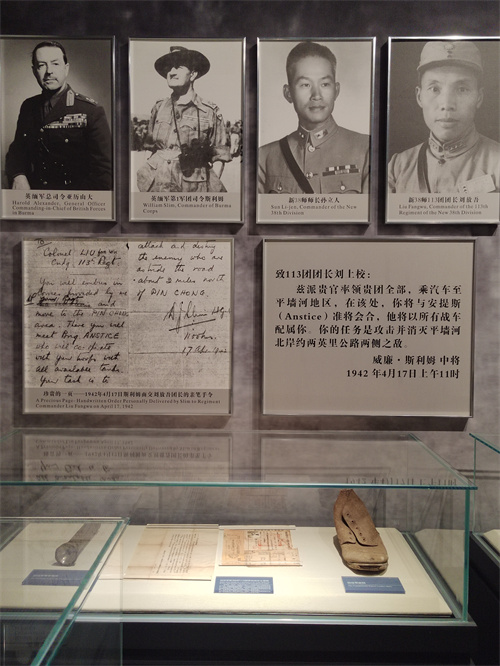 英缅军总司令亚历山大
Harold Alexander, General Officer
Commanding-in-Chief of British Forces
in Burma
英缅军第1军团司令斯利姆
William Slim, Commander of Burma
Corps
新38师师长孙立人
Sun Li-jen, Commander of the New
38th Division
新38师113团团长刘放吾
Liu Fangwu, Commander of the 113th
Regiment of the New 38th Division
To
Colonel LIU
Cmdg. 113 Regt
You will embus in
and
move to the PIN CHONG
area. There you will
meet Brig. ANSTICE
who will co-operate
with your troops with
all available tanks
Your task is to
attack and destroy
the enemy who are
astride the road
about 2 miles north
of PIN CHONG.
1100 hrs.
17
珍贵的一页——1942年4月17日斯利姆面交刘放吾团长的亲笔手令
A Precious Page: Handwritten Order Personally Delivered by Slim to Regiment
Commander Liu Fangwu on April 17, 1942
致113团团长刘上校：
兹派贵官率领贵团全部，乘汽车至
平墙河地区，在该处，你将与安提斯
（Anstice）准将会合，他将以所有战车
配属你。你的任务是攻击并消灭平墙河
北岸约两英里公路两侧之敌。
威廉·斯利姆 中将
1942 年4月17日上午11时